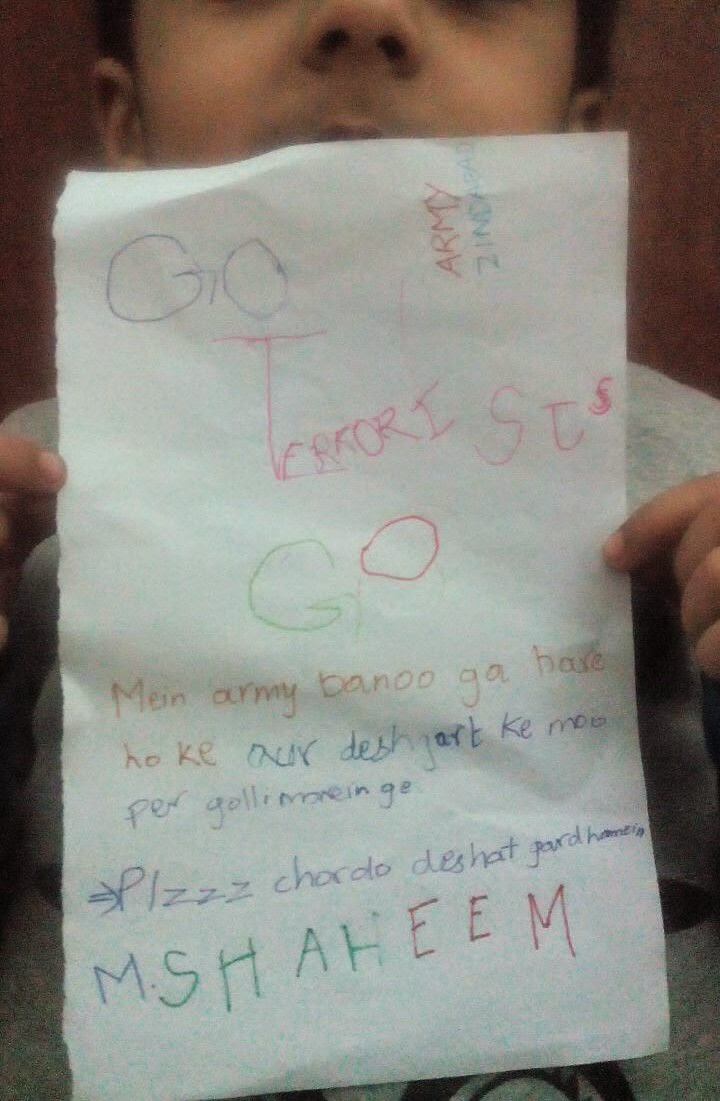 ARMY
ZINDABAD
GO
TERRORISTS
GO
Mein army banoo ga bare
ho ke aur deshgart ke moo
per golli marein ge
⇒Plzzz chordo deshat gard hamein
M.SHAHEEM